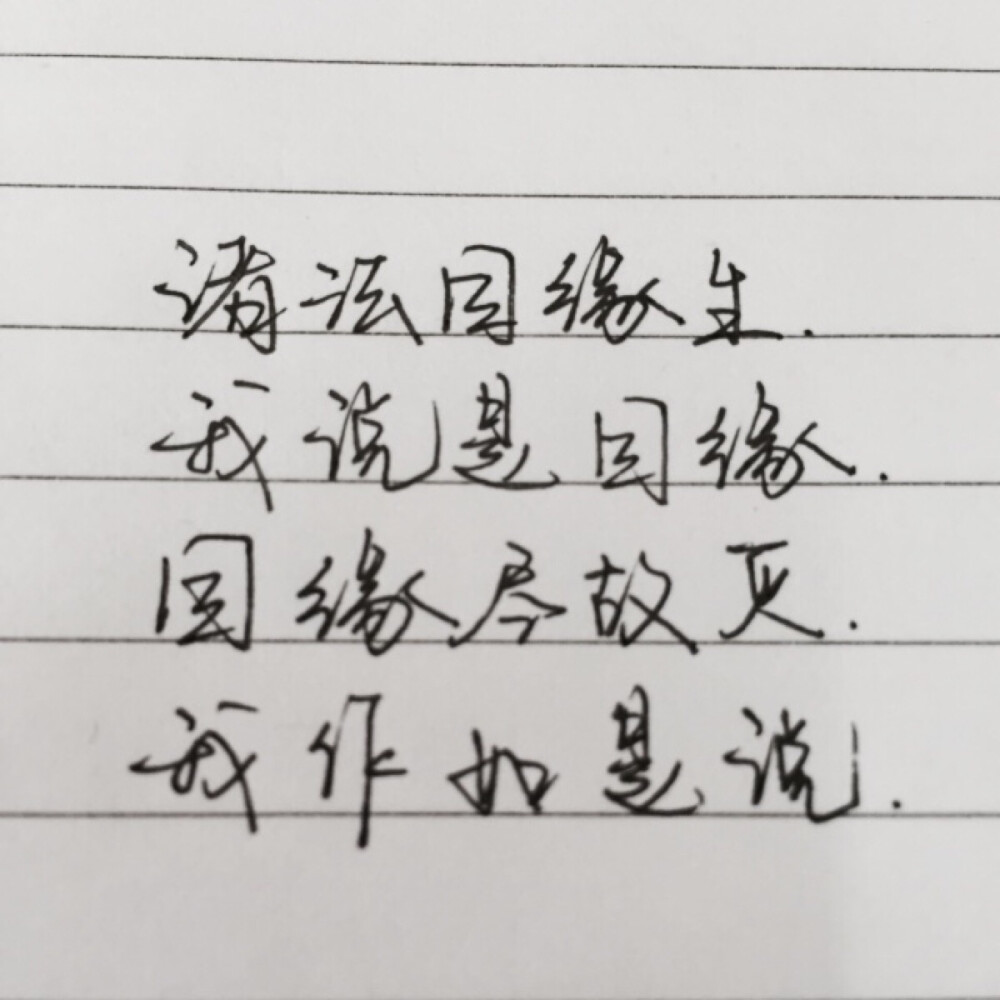 诸法因缘生.
我说是因缘.
因缘尽故灭.
我作如是说.